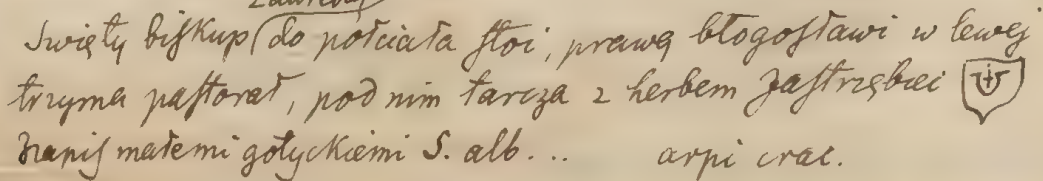 Święty biſkup (do połciała ſtoi, prawą błogoſławi w lewej
trzyma paſtorał, pod nim tarcza z herbem Jaſtrzębiec
Napiſ małemi gotyckiemi S. alb... arpi crac.